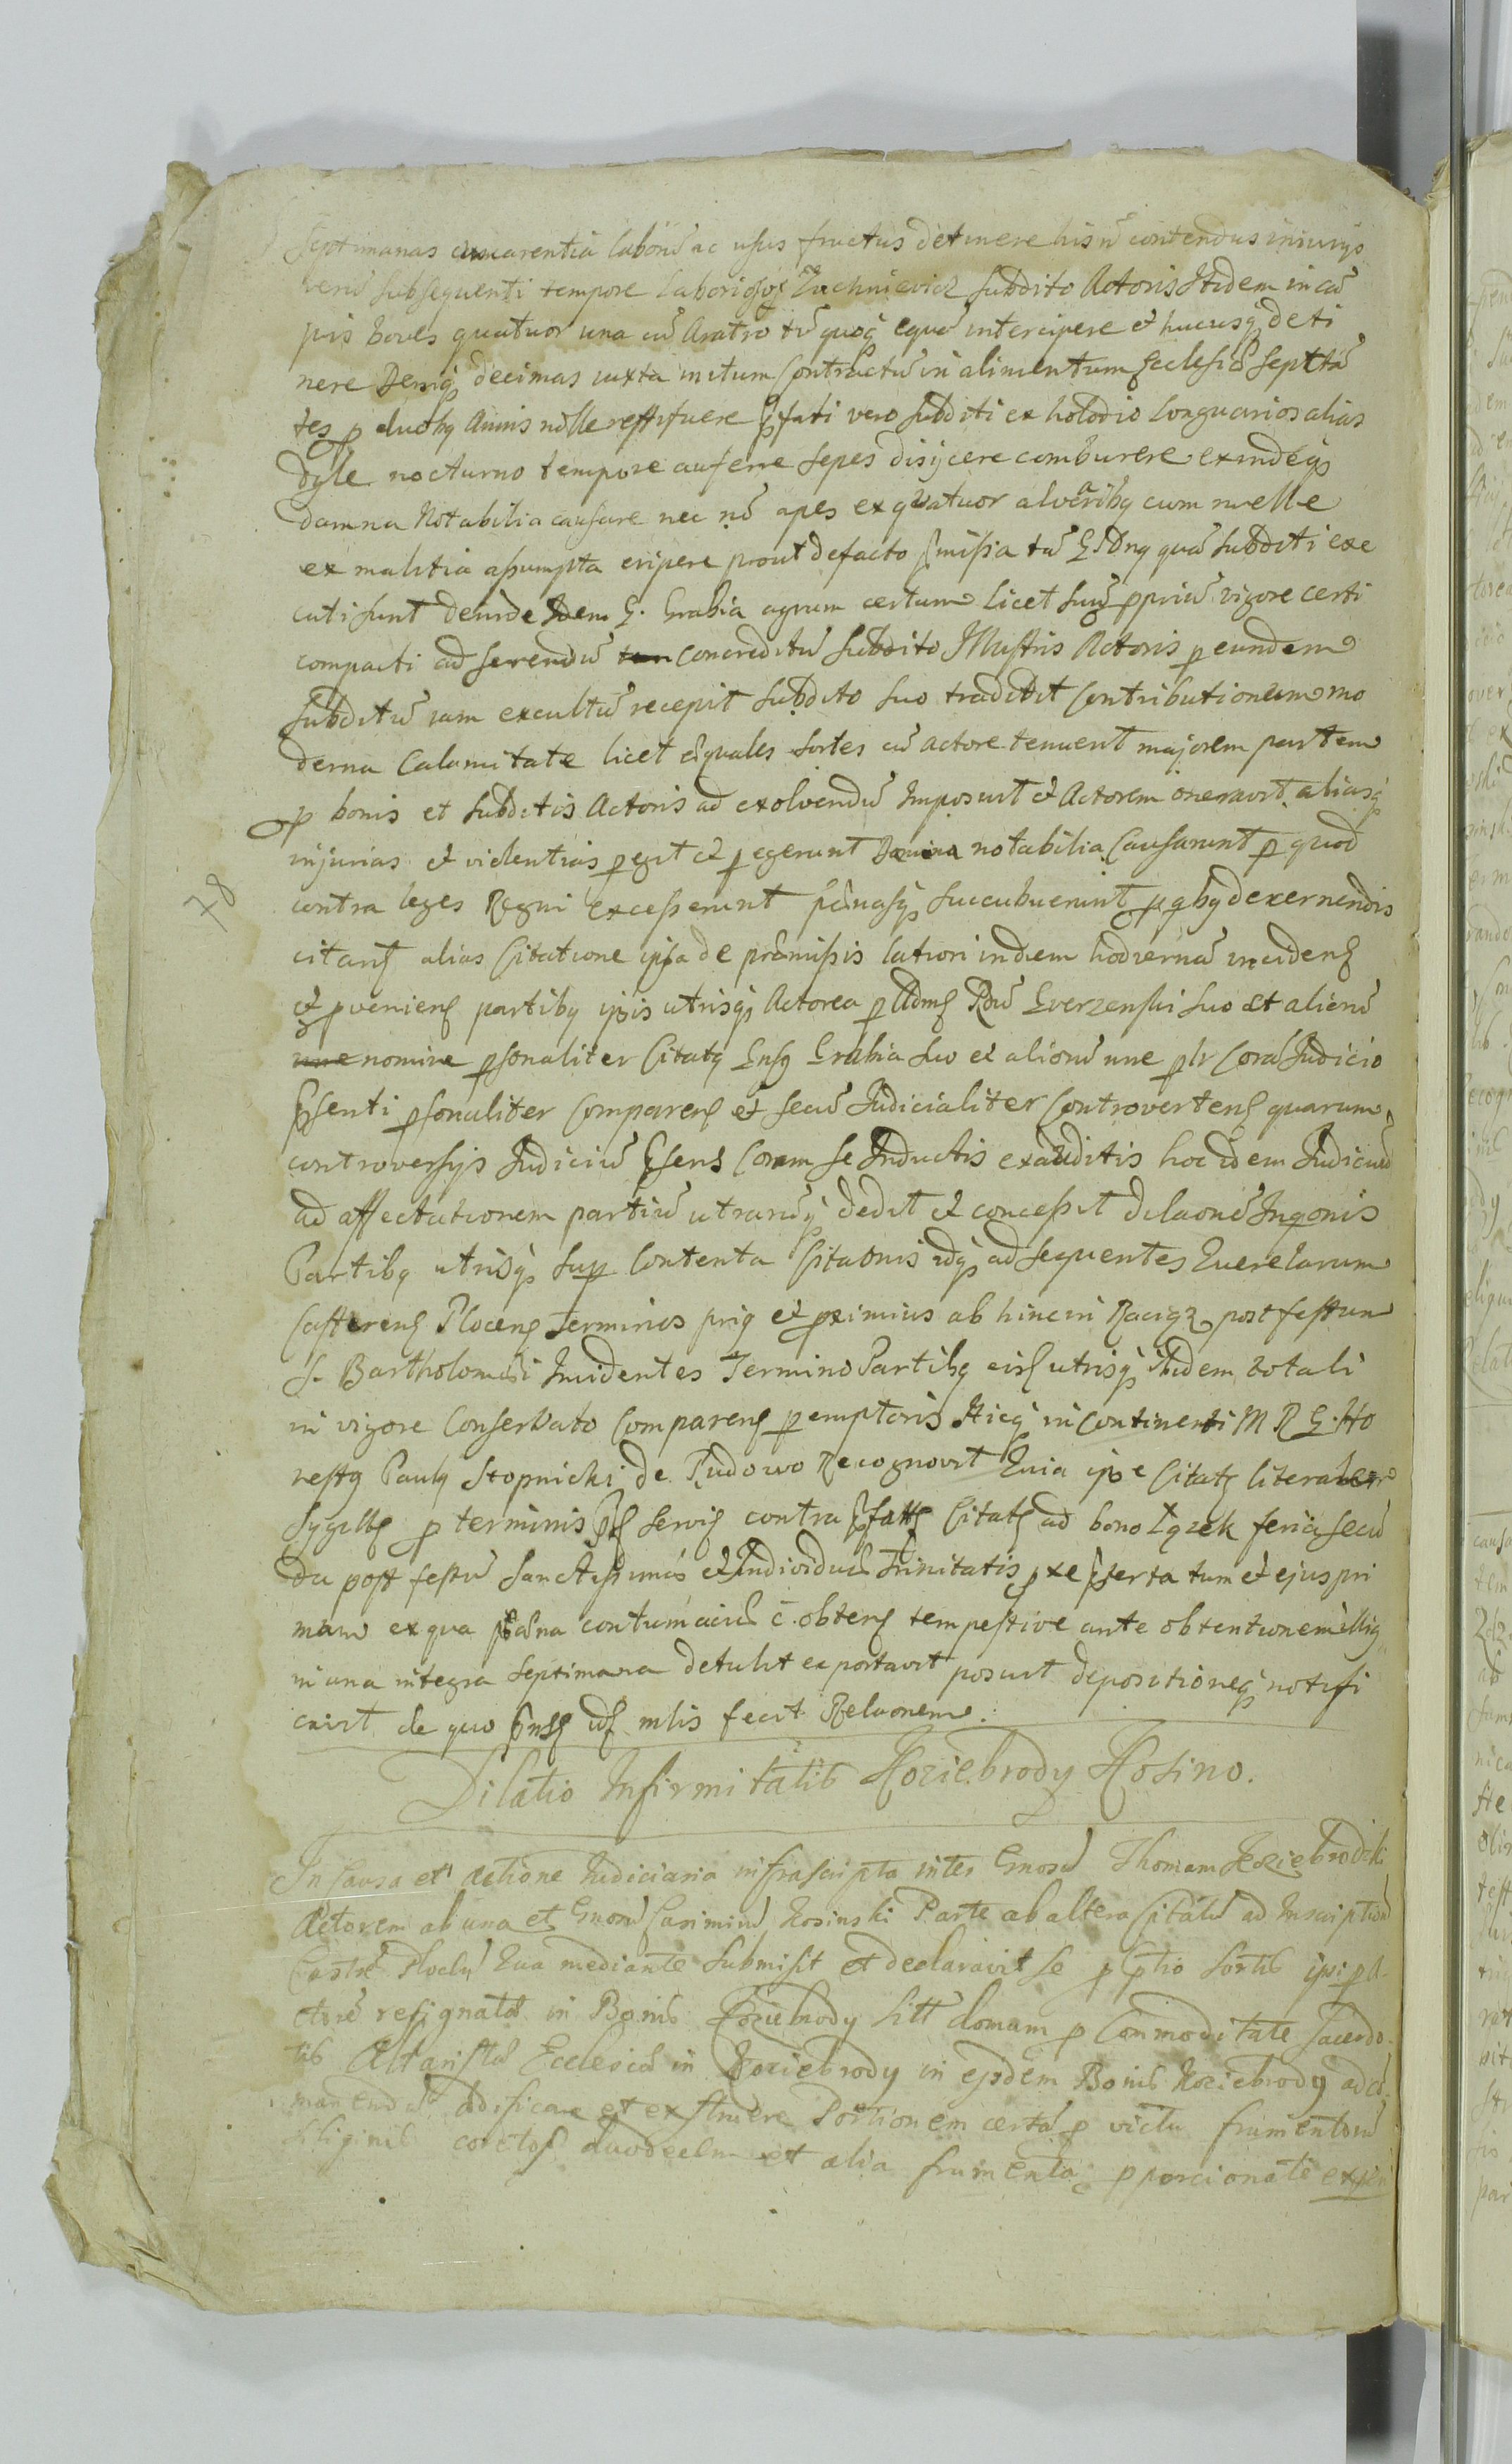 Septimanas cum carentia laborū ac usus fructus detinere his nō contendus iniurijs
verū subsequenti tempore Laboriosoꝫ Zuchniewicz subdito Actoris Itidem in cā
pis boves quatuor una cū Aratro tū quoq equā intercipere et hucusq deti
nere Deniq decimas iuxta initum Contractū in alimentum Ecclesiæ
duoby Annis nolle restituere pfati vero subditi ex holodio longuarios alias
dyle nocturno tempore auferre sepes disijcere comburere exindeq
damna Notabilia causare nec nō apes ex quatuor alvearibq cum melle
ex malitia assumpta eripere prout defacto pmissa tā G. Dnq quā subditi exe
cuti sunt deinde Idem G. Grabia agrum certum licet suū ppriū vigore certi
compacti ad serendū concreditū subdito Illustris Actoris p eundem
subditū iam excultū recepit subdito suo tradidit Contributionum mo
derna Calamitate licet æquales sortes cū actore tenuerit majorem partem
p bonis et subditis Actoris ad exolvendū Imposuit et Actorem oneravit aliasq
injurias et violentias pegit et pegerunt Damna notabilia Causarunt p quod
contra leges Regni excesserunt pænasq succubuerunt p qbq decernendis
citatꝫ alias Citatione ipsa de præmissis latiori indiem hodiernā incidenꝫ
et pvenienꝫ partibq ipsis utrisq Actorea p Adm Rdū Gverzenski suo et alionū
nomine psonaliter Citatq Gnsq Grabia suo et alionū nne plr Corā Judicio
psenti psonaliter Comparenꝫ et secū Judicialiter Controvertenꝫ quarum
controversijs Judiciū psens Coram se Inductis exauditis hoc idem Judiciū
ad affectationem partiū utrarūq dedit et concessit dilaonē Inqonis
Partibq utrisq sup Contenta Citaonis idq ad sequentes Querelarum
Castrenꝫ Plocenꝫ Terminos priq et pximius ab hinc in Raciąz post festum
S. Bartholomæi Incidentes Termino Partibq eisꝫ utrisq Itidem totali
in vigore Conservato Comparenꝫ pemptoris Hicq in continenti M R G. Ho
nestq Paulq Stopnicki de Rudowo Recognovit Quia ipse Citatꝫ literaler
Sygillꝫ p terminis pꝫ servis contra pfattꝫ Citatꝫ ad bono Łązek feria secū
da post festū Sanctissimæ et Individuæ Trinitatis pxe pterita tum et ejus pri
mam ex qua pæna contumaciæ ē obtenꝫ tempestive ante obtentionem illiq
in una integra septimana detulit ex portavit posuit depositionēq notifi
cavit de quo pnsꝫ idꝫ mlis fecit Relaonem.
Dilatio Infirmitatis Koziebrody Kosino.
In Causa et Actione Judiciaria infrascripta inter Gnosū Thomam Koziebrodzki
Actorem ab una et Gnosū Casimirū Kosinski Parte ab altera Citatū ad Inscriptionē
Castrē Plocen Qua mediante submisit et declaravit se p ptio sortis ipsi p A-
ctorē resignatæ in Bonis Koziebrody sitt domum p Commoditate Sacerdo-
tis Altaristæ Ecclesiæ in Koziebrody in ejsdem Bonis Koziebrody ad cō-
manendū ædificare et exstruere Portionem certā p victu frumentorū
siliginis coretos duodecim et alia frumenta pporcionate expen
78